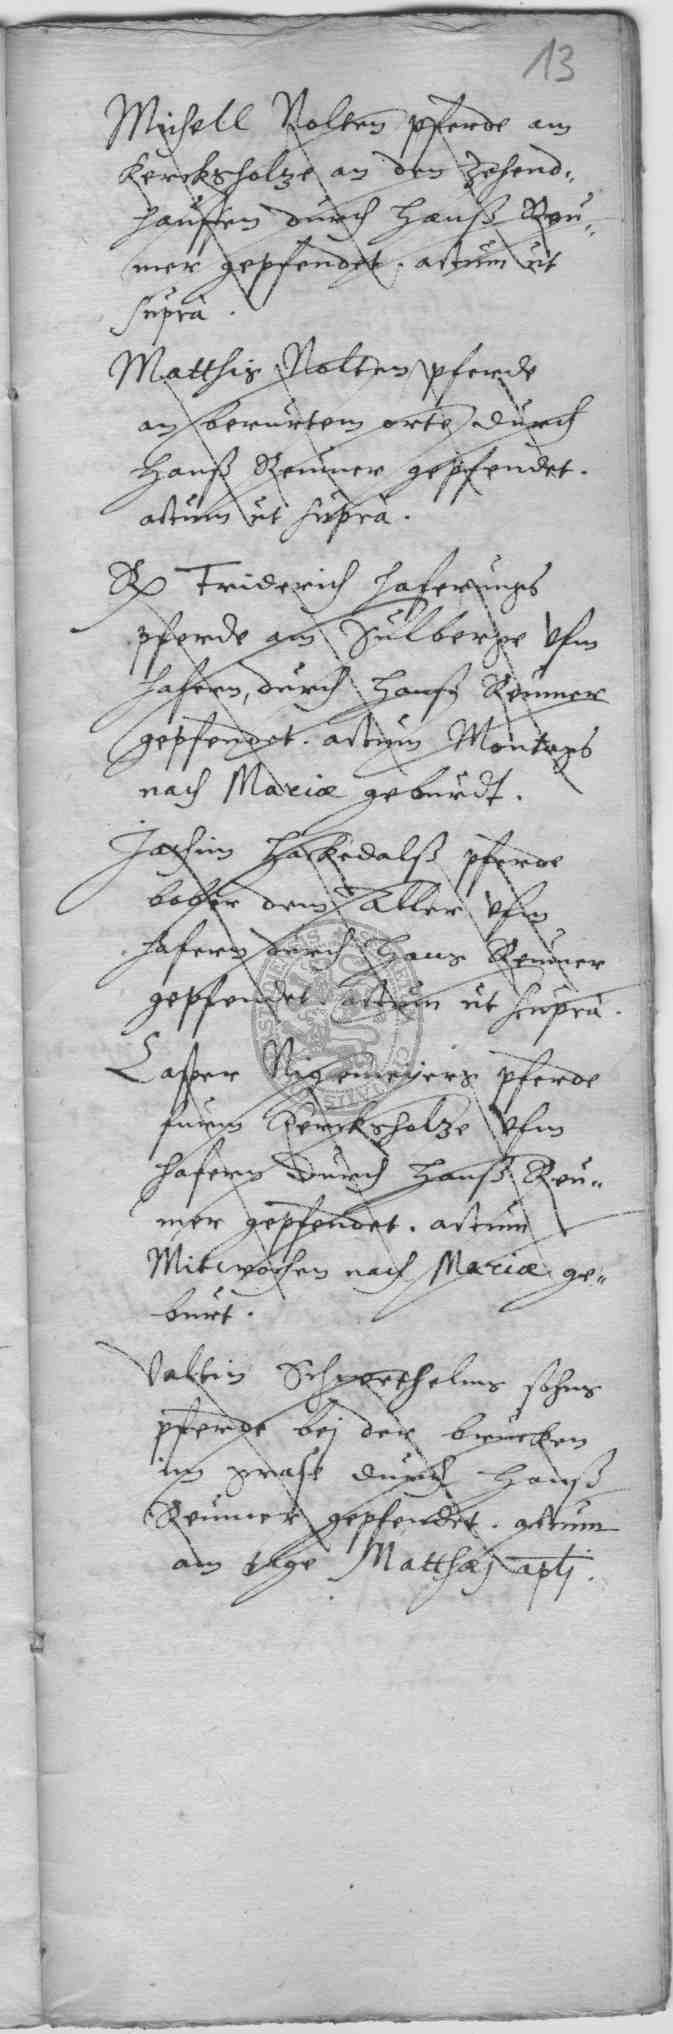 13
Michell Nolten pferde am
Kercksholtze an den Zehend„
hauffen durch Hanß Reu„
mer gepfendet. actum ut
supra.
Matthis Nolten pferde
an berurtem orte durch
Hanß Reumer gepfendet.
actum ut supra.
Friderich Haferungs
pferde am Sulberge vfm
hafern, durch Hanß Reumer
gepfendet. actum Montags
nach Mariæ geburdt.
Jochim Hackedalß pferde
bober dem Aller vfm
hafern durch Hans Reumer
gepfendet. actum ut supra.
Casper Nigemeijers pferde
furm Kercksholtze vfm
hafern durch Hanß Reu„
mer gepfendet. actum
Mitwochen nach Mariæ ge„
burt.
Valtin sohns
pferde bej der brucken
im grase durch Hanß
Reumer gepfendet. actum
am tage Matthæj aplj.